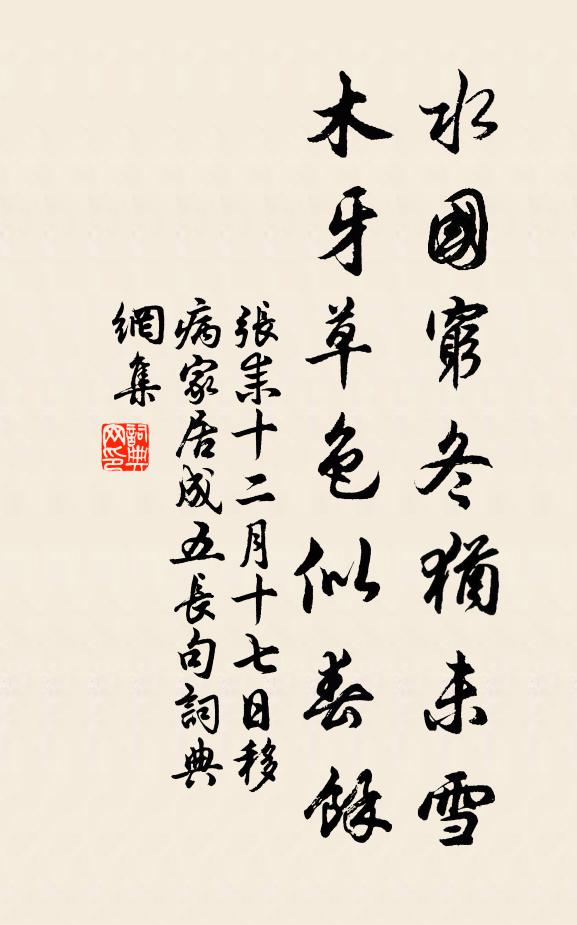 水國窮冬猶未雪
木牙草色似春餘
張耒十二月十七日移
病家居成五長句詞典
網集
詞典
网印